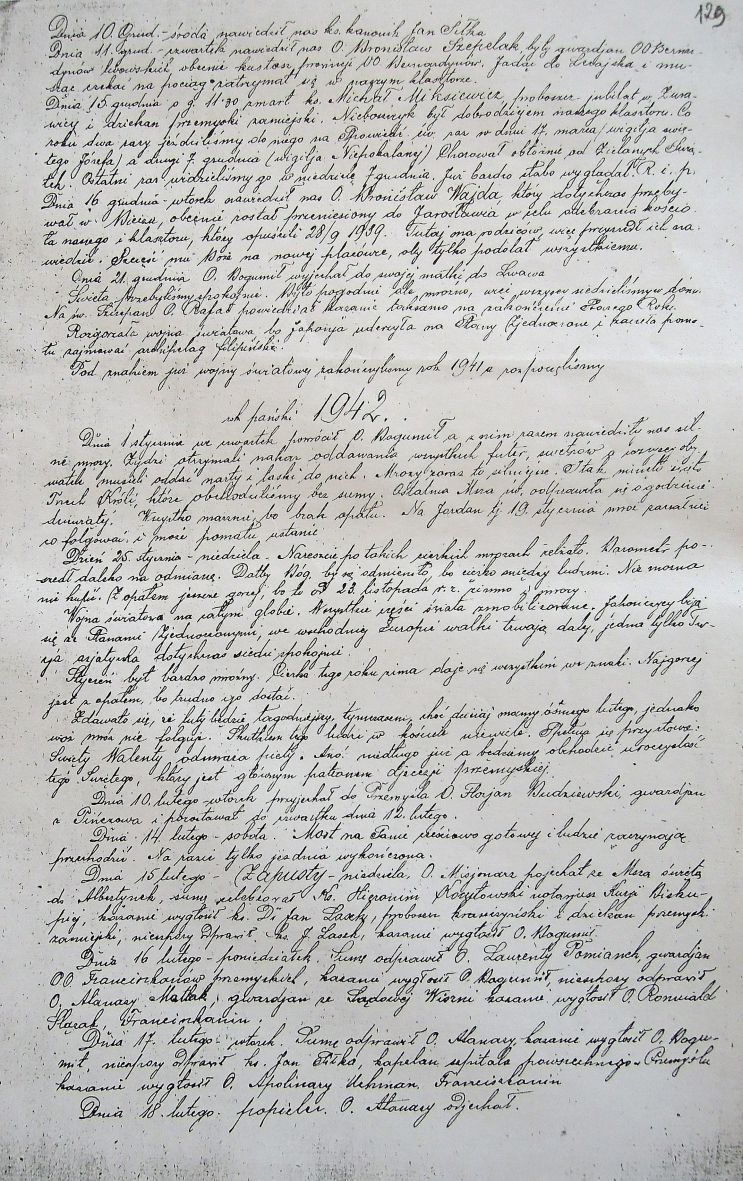 129
Dnia 10. Grud. - środa nawiedził nas ks. kanonik Jan Siłka
Dnia 11. grud. - czwartek nawiedził nas O. Bronisław Szepelak, były gwardjan OO Bernar-
dynów lwowskich, obecnie kustosz prowincji OO Bernardynów. Jadąc do Leżajska i mu-
sząc czekać na pociąg zatrzymał się w naszym klasztorze.
Dnia 15 grudnia o g. 11:30 zmarł ks. Michał Miksiewicz, proboszcz jubilat w Żura-
wicy i dziekan przemyski zamiejski. Nieboszczyk był dobrodziejem naszego klasztoru. Co
roku dwa razy jeździliśmy do niego na spowiedź św. raz w dniu 17. marca (wigilja świę-
tego Józefa) a drugi 7. grudnia (wigilja Niepokalanej) Chorował obłożnie od Zielonych Świą-
tek. Ostatni raz widzieliśmy go w niedzielę 7 grudnia. Już bardzo słabo wyglądał. R. i. p.
Dnia 16 grudnia - wtorek nawiedził nas O. Bronisław Wajda, który dotychczas przeby-
wał w Bieczu, obecnie został przeniesiony do Jarosławia w celu odebrania kościo-
ła naszego i klasztoru, który opuścili 28/9 1939. Tutaj ma rodziców, więc przyszedł ich na-
wiedzić. Szczęść mu Boże na nowej placówce, aby tylko podołał wszystkiemu.
Dnia 21. grudnia O. Bogumił wyjechał do swojej matki do Lwowa
Święta przebyliśmy spokojnie. Było pogodnie ale mroźno, więc wszyscy siedzieliśmy w domu.
Na św. Szczepan O. Rafał powiedział kazanie tak samo na zakończenie Starego Roku.
Rozgorzała wojna światowa bo Japonja uderzyła na Stany Zjednoczone i zaczęła pomo-
łu zajmować archipelag filipiński.
Pod znakiem już wojny światowej zakończyliśmy rok 1941 a rozpoczęliśmy
rok pański 1942.
Dnia 1 stycznia we czwartek powrócił O. Bogumił a z nim razem nawiedziły nas sil-
ne mrozy. Żydzi otrzymali nakaz oddawania wszystkich futer, swetrów a wszyscy oby-
watele musieli oddać narty i laski do nich. Mrozy coraz to silniejsze. I tak minęło święto
Trzech Króli, które obchodziliśmy bez sumy. Ostatnia Msza św. odprawiła się o godzinie
dziewiątej. Wszystko marznie, bo brak opału. Na Jordan tj 19. stycznia mróz zaczął nie-
co folgować i może pomału ustanie
Dzień 25. stycznia - niedziela. Nareszcie po takich ciężkich mrozach zelżało. Barometr po-
szedł daleko na odmianę. Dałby Bóg, by się odmieniło, bo ciężko między ludźmi. Nie można
nic kupić. Z opałem jeszcze gorzej, bo to od 23. listopada r. z. zimno i mrozy.
Wojna światowa na całym globie. Wszystkie części świata zmobilizowane. Japończycy biją
się ze Stanami Zjednoczonymi, we wschodniej Europie walki trwają dalej, jedna tylko Tur-
cja azjatycka dotychczas siedzi spokojnie.
Styczeń był bardzo mroźny. Ciężka tego roku zima daje się wszystkim we znaki. Najgorzej
jest z opałem, bo trudno go dostać.
Zdawało się, że luty będzie łagodniejszy, tymczasem, choć dzisiaj mamy ósmego lutego, jednako-
woż mróz nie folguje. Skutkiem tego ludzi w kościele niewiele. Spełnia się przysłowie:
Święty Walenty odmraża pięty. Ano! niedługo już a będziemy obchodzić uroczystość
tego Świętego, który jest głównym patronem djecezji przemyskiej.
Dnia 10. lutego - wtorek przyjechał do Przemyśla O. Florjan Budziewski, gwardjan
z Pińczowa i pozostawał do czwartku dnia 12. lutego.
Dnia 14. lutego - sobota. Most na Sanie częściowo gotowy i ludzie zaczynają
przechodzić. Na razie tylko jezdnia wykończona.
Dnia 15 lutego - (Zapusty) - niedziela. O. Misjonarz pojechał ze Mszą świętą
do Albertynek, sumę celebrował Ks. Hieronim Kocyłowski notarjusz Kurji Bisku-
piej, kazanie wygłosił ks. Dr Jan Lasek, proboszcz krasiczyński i dziekan przemyski
zamiejski, nieszpory odprawił ks. J. Lasek, kazanie wygłosił O. Bogumił.
Dnia 16 lutego - poniedziałek. Sumę odprawił O. Laurenty Pomianek, gwardjan
OO Franciszkanów przemyskich, kazanie wygłosił O. Bogumił, nieszpory odprawił
O. Atanazy Matlak, gwardjan ze Sądowej Wiszni kazanie wygłosił O. Romuald
Ślązak Franciszkanin.
Dnia 17. lutego - wtorek. Sumę odprawił O. Atanazy, kazanie wygłosił O. Bogu-
mił, nieszpory odprawił ks. Jan Siłka, kapelan szpitala powszechnego w Przemyślu
kazanie wygłosił O. Apolinary Uchman, Franciszkanin
Dnia 18. lutego. popielec. O. Atanazy odjechał.